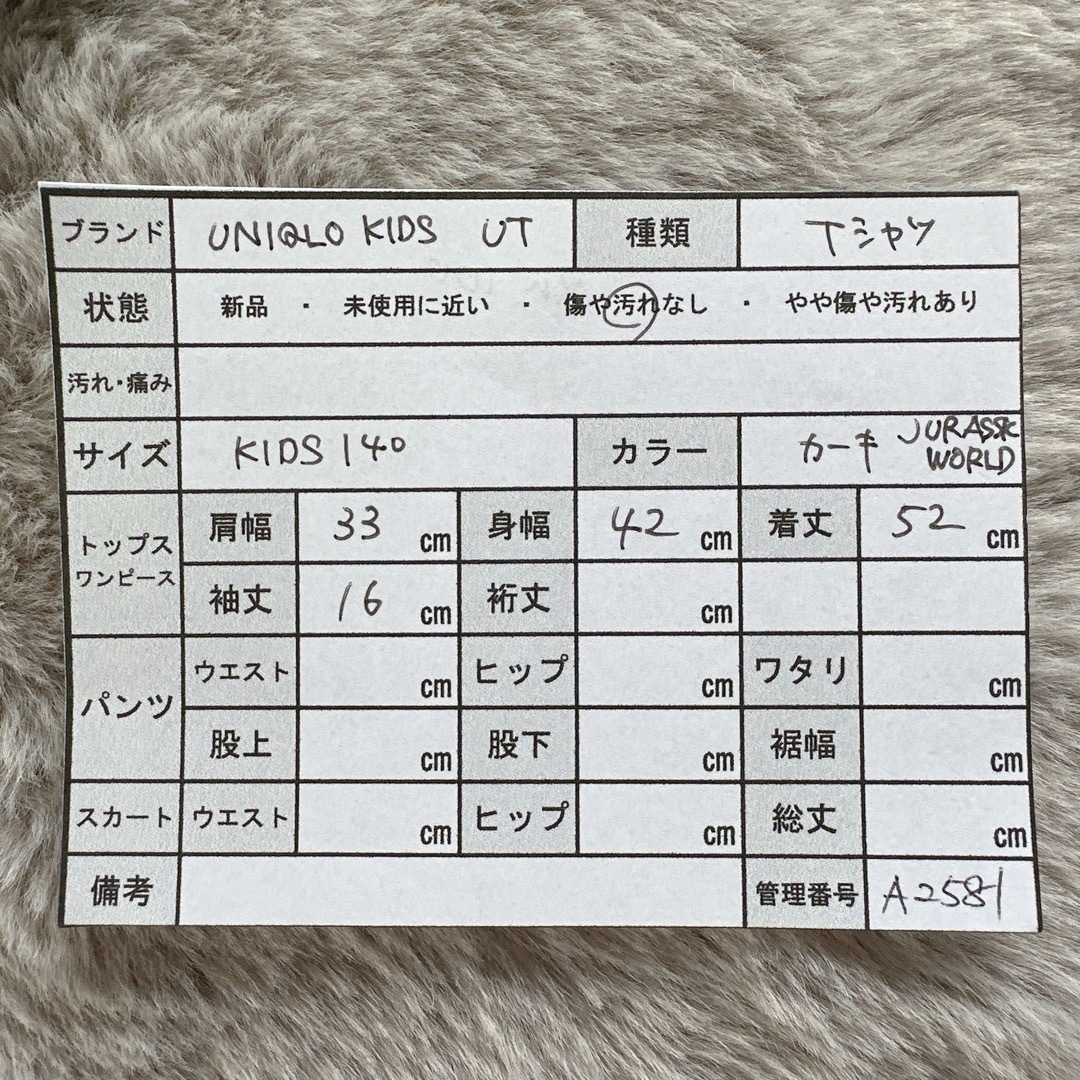 ブランド UNIQLO KIDS UT 種類 Tシャツ
状態 新品 ・ 未使用に近い ・ 傷や汚れなし ・ やや傷や汚れあり
汚れ・痛み
サイズ KIDS 140 カラー カーキ JURASSIC WORLD
トップス ワンピース 肩幅 33 cm 身幅 42 cm 着丈 52 cm
袖丈 16 cm 裄丈 cm
パンツ ウエスト cm ヒップ cm ワタリ cm
股上 cm 股下 cm 裾幅 cm
スカート ウエスト cm ヒップ cm 総丈 cm
備考 管理番号 A2581